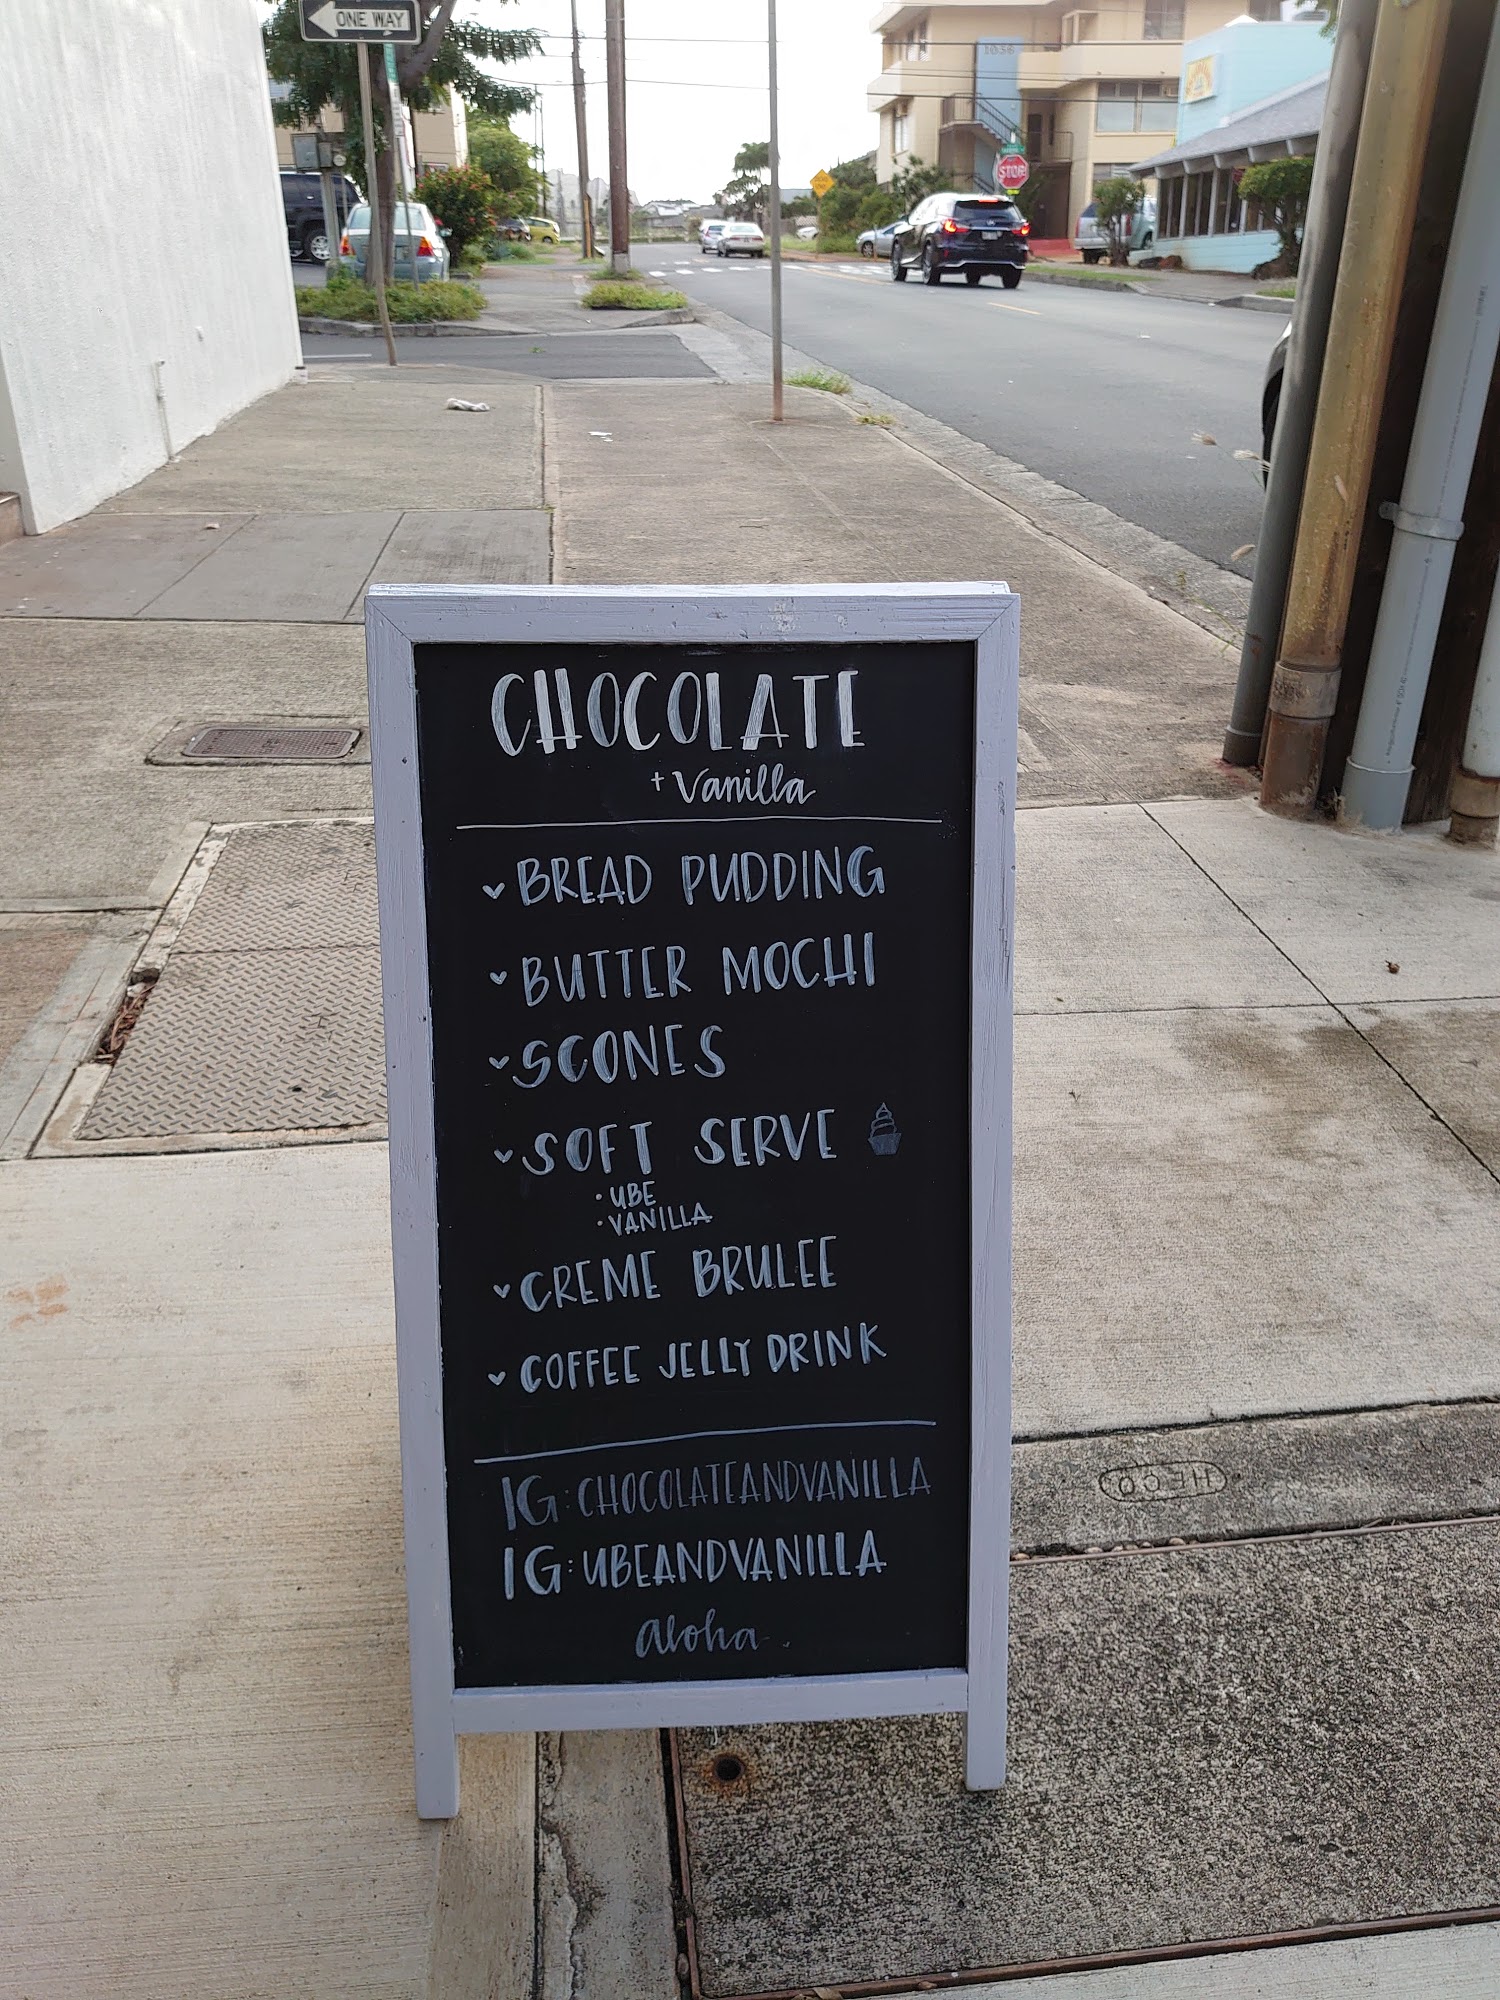 ONE WAY
1036
STOP
CHOCOLATE
+ Vanilla
BREAD PUDDING
BUTTER MOCHI
SCONES
SOFT SERVE
• UBE
• VANILLA
CREME BRULEE
COFFEE JELLY DRINK
IG: CHOCOLATEANDVANILLA
IG: UBEANDVANILLA
aloha